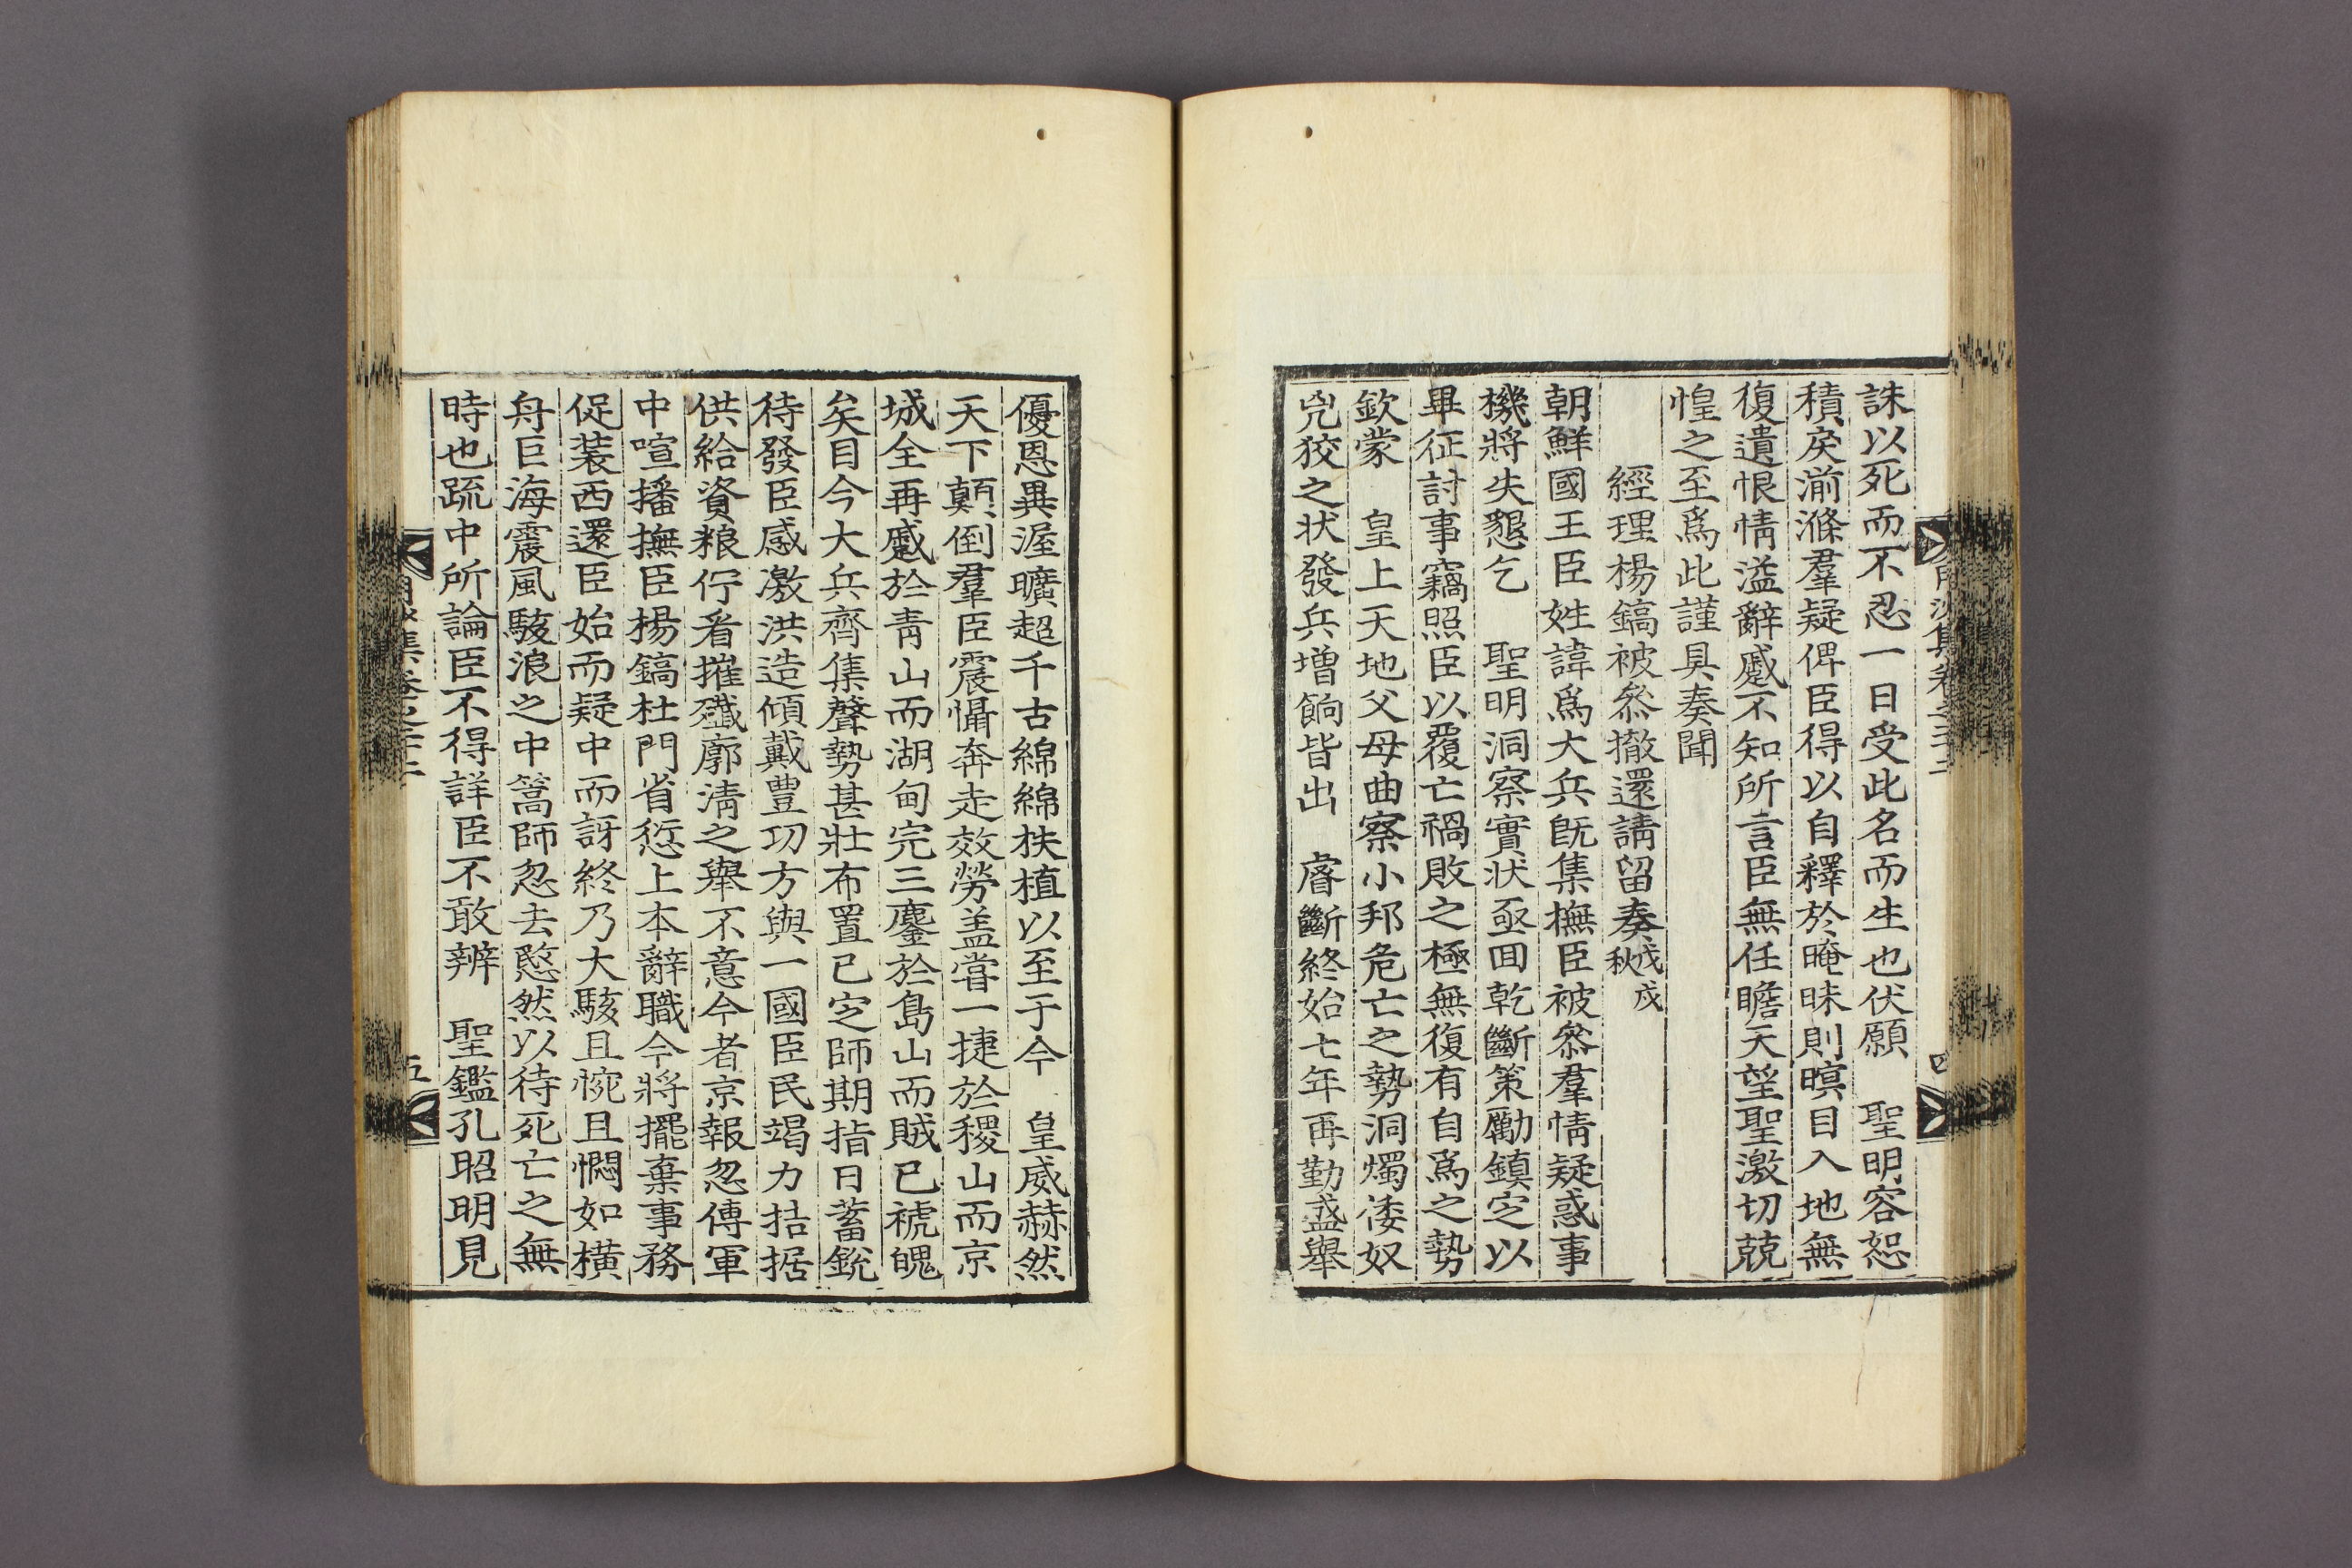 誅以死而不忍一日受此名而生也伏願 聖明容恕
積戾湔滌羣疑俾臣得以自釋於晻昧則暝目入地無
復遺恨情溢辭蹙不知所言臣無任瞻天望聖激切兢
惶之至爲此謹具奏聞
經理楊鎬被叅撤還請留奏戊戌秋
朝鮮國王臣姓諱爲大兵旣集撫臣被叅羣情疑惑事
機將失懇乞 聖明洞察實狀亟回乾斷策勵鎮定以
畢征討事竊照臣以覆亡禍敗之極無復有自爲之勢
欽蒙 皇上天地父母曲察小邦危亡之勢洞燭倭奴
兇狡之状發兵增餉皆出 睿斷終始七年再勤盛舉
優恩異渥曠超千古綿綿扶植以至于今 皇威赫然
天下顛倒羣臣震懾奔走效勞盖嘗一捷於稷山而京
城全再蹙於靑山而湖甸完三鏖於島山而賊已褫魄
矣目今大兵齊集聲勢甚壯布置已定師期指日蓄銳
待發臣感激洪造傾戴豊功方與一國臣民竭力拮据
供給資粮佇看摧殲廓淸之舉不意今者京報忽傳軍
中喧播撫臣楊鎬杜門省愆上本辭職今將擺棄事務
促裝西還臣始而疑中而訝終乃大駭且惋且憫如橫
舟巨海震風駭浪之中篙師忽去愍然以待死亡之無
時也䟽中所論臣不得詳臣不敢辨 聖鑑孔昭明見